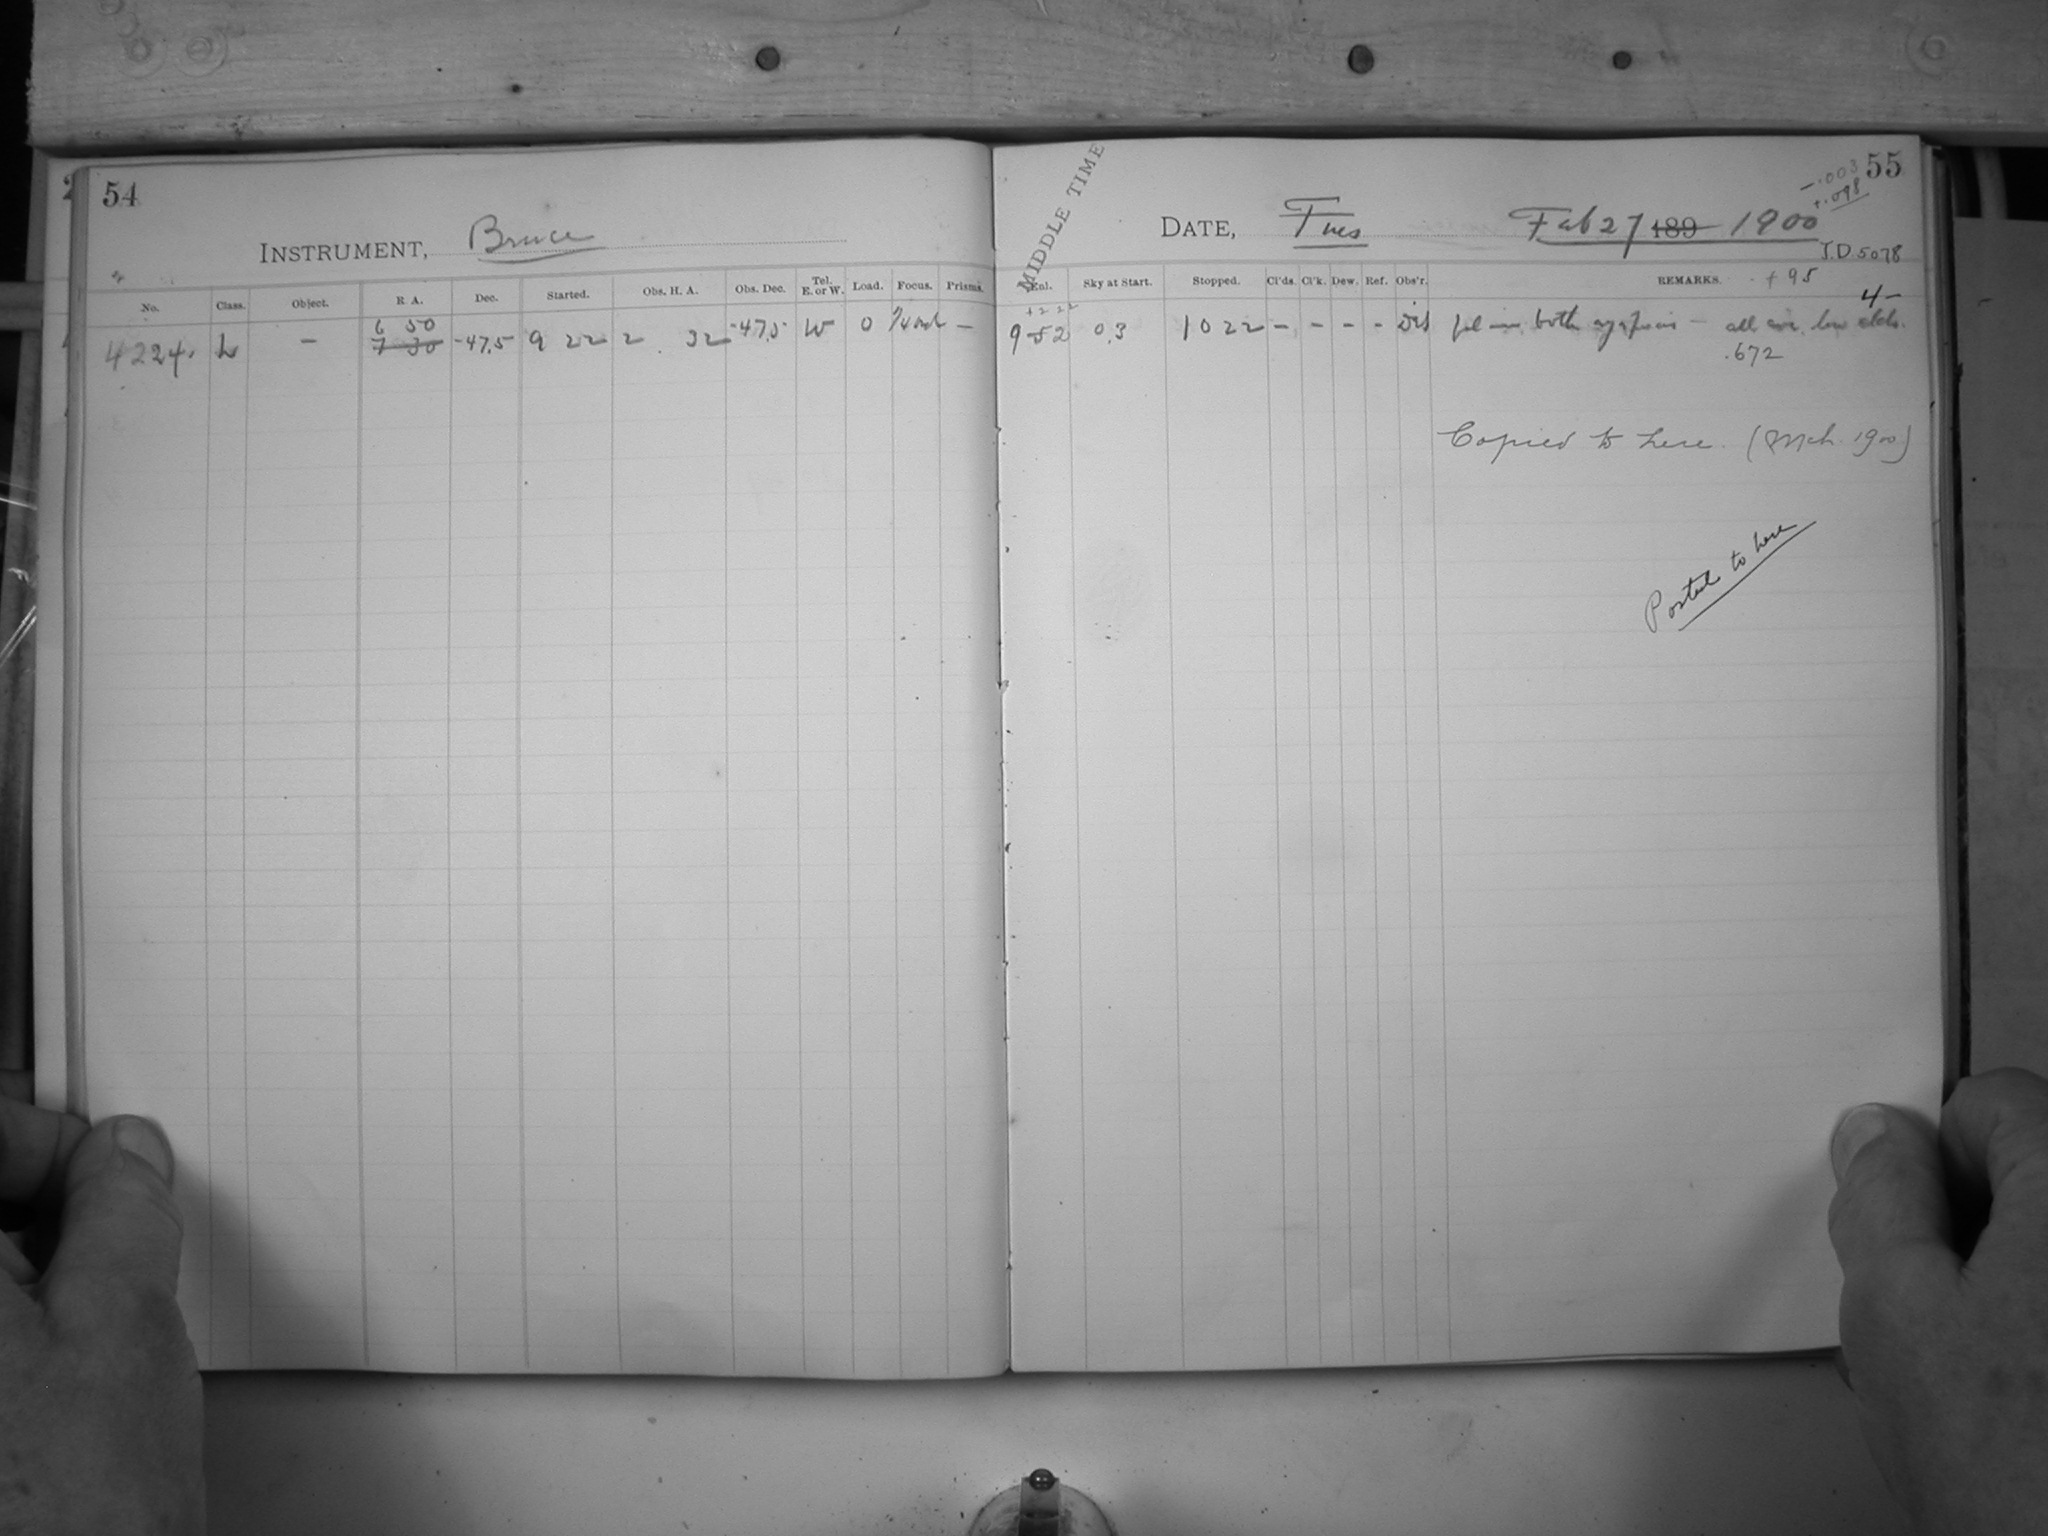 54
INSTRUMENT, Bruce
No. Class. Object. R A. Dec. Started. Obs. H. A. Obs. Dec. Tel. E. or W. Load. Focus. Prisms.
6 50
4224. L — 7 30 -47.5 9 22 2 32 -47.5 W 0 —
MIDDLE TIME
-.003 55
+.098
DATE, Tues Feb 27 189 1900
J.D 5078
Enl. Sky at Start. Stopped. Cl'ds. Cl'k. Dew. Ref. Obs'r. REMARKS. + 95
+2 22 4-
9 52 0.3 10 22 - - - - both all
.672
Copied to here. (Mch. 1900)
Posted to here